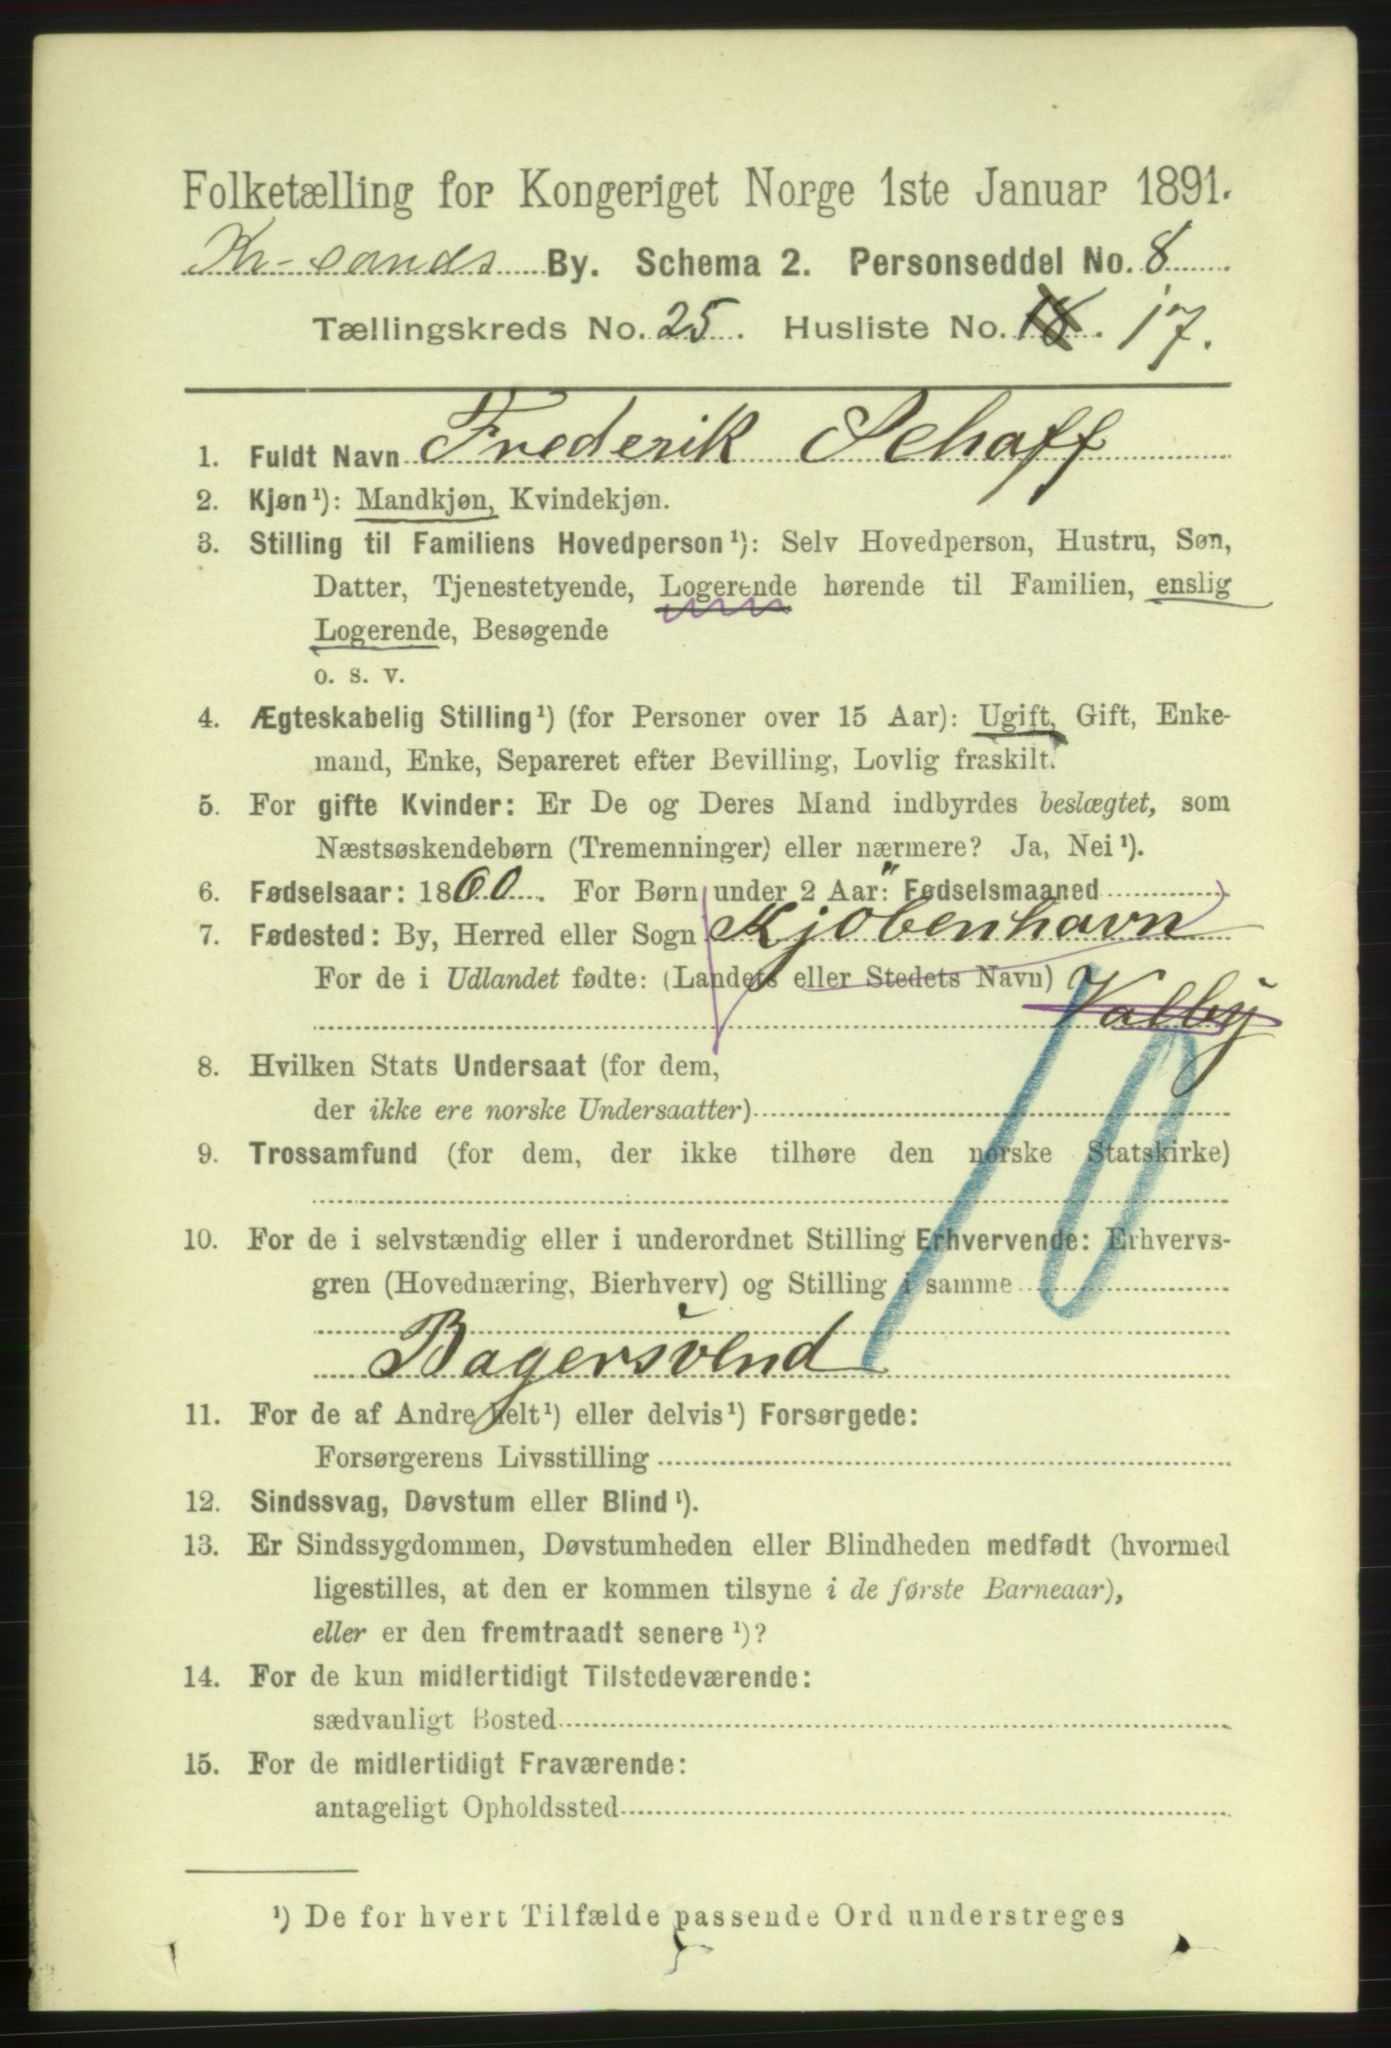 Folketælling for Kongeriget Norge 1ste Januar 1891.
Kr-sands By. Schema 2. Personseddel No. 8
Tællingskreds No. 25. Husliste No. 18. 17.
1. Fuldt Navn Frederik Schaff
2. Kjøn¹): Mandkjøn, Kvindekjøn.
3. Stilling til Familiens Hovedperson¹): Selv Hovedperson, Hustru, Søn,
Datter, Tjenestetyende, Logerende hørende til Familien, enslig
Logerende, Besøgende
o. s. v.
4. Ægteskabelig Stilling¹) (for Personer over 15 Aar): Ugift, Gift, Enke-
mand, Enke, Separeret efter Bevilling, Lovlig fraskilt.
5. For gifte Kvinder: Er De og Deres Mand indbyrdes beslægtet, som
Næstsøskendebørn (Tremenninger) eller nærmere? Ja, Nei¹).
6. Fødselsaar: 1860. For Børn under 2 Aar: Fødselsmaaned
7. Fødested: By, Herred eller Sogn Kjöbenhavn
For de i Udlandet fødte: (Landets eller Stedets Navn)
Valby
8. Hvilken Stats Undersaat (for dem,
der ikke ere norske Undersaatter)
9. Trossamfund (for dem, der ikke tilhøre den norske Statskirke)
10
10. For de i selvstændig eller i underordnet Stilling Erhvervende: Erhvervs-
gren (Hovednæring, Bierhverv) og Stilling i samme
Bagersvend
11. For de af Andre helt¹) eller delvis¹) Forsørgede:
Forsørgerens Livsstilling
12. Sindssvag, Døvstum eller Blind¹).
13. Er Sindssygdommen, Døvstumheden eller Blindheden medfødt (hvormed
ligestilles, at den er kommen tilsyne i de første Barneaar),
eller er den fremtraadt senere¹)?
14. For de kun midlertidigt Tilstedeværende:
sædvanligt Bosted
15. For de midlertidigt Fraværende:
antageligt Opholdssted
¹) De for hvert Tilfælde passende Ord understreges